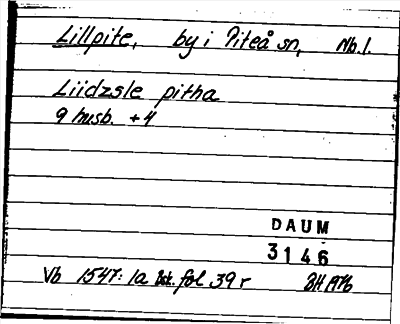 Lillpite, by i Piteå sn, Nb.l.
Liidzsle pitha
9 husb. +4
DAUM
3146
Vb 1547: 1a fol 39 r